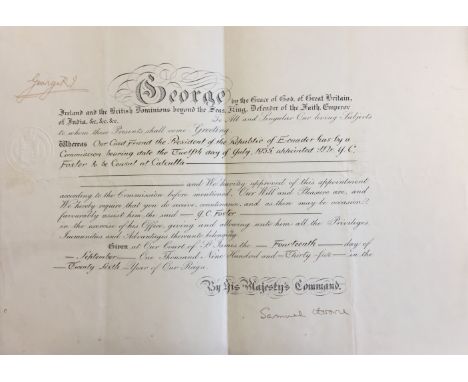 George R.I.
George by the Grace of God, of Great Britain,
Ireland and the British Dominions beyond the Seas, King, Defender of the Faith, Emperor
of India, &c. &c. &c.
To All and Singular Our loving Subjects
to whom these Presents shall come Greeting
Whereas Our Good Friend the President of the Republic of Ecuador has by a
Commission bearing date the Twelfth day of July 1935, appointed Mr Y. C.
Foster to be Consul at Calcutta
and We having approved of this appointment
according to the Commission before mentioned, Our Will and Pleasure are, and
We hereby require that you do receive, countenance, and as there may be occasion
favourably assist him the said Y. C. Foster
in the exercise of his Office, giving and allowing unto him all the Privileges,
Immunities and Advantages thereunto belonging
Given at Our Court of St James the Fourteenth day of
September One Thousand Nine Hundred and Thirty five in the
Twenty Sixth Year of Our Reign
By His Majesty's Command,
Samuel Hoare